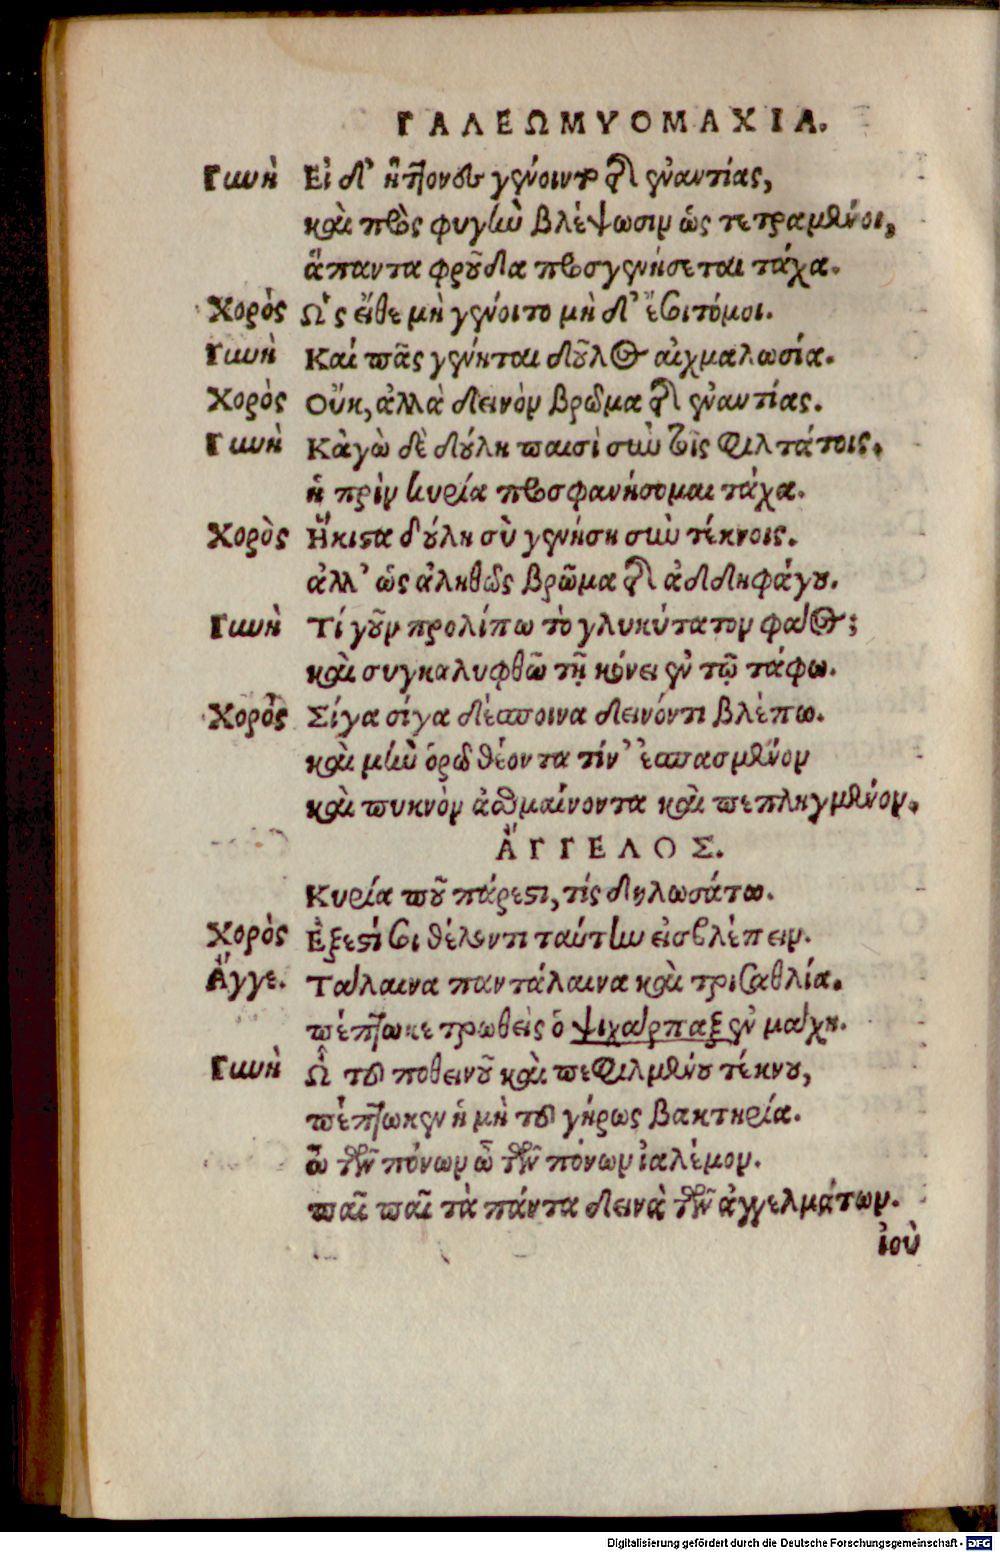 ΓΑΛΕΩΜΥΟΜΑΧΙΑ.
Γυνὴ Εἰ δ' ἥττονες γένοιντο τῆς ἐναντίας,
καὶ πρὸς φυγὴν βλέψωσιν ὡς τετραμμένοι,
ἅπαντα φροῦδα προσγενήσεται τάχα.
Χορὸς Ὡς εἴθε μὴ γένοιτο μὴ δ' ἔστι τόμοι.
Γυνὴ Καί πᾶς γένηται δοῦλος αἰχμαλωσία.
Χορὸς Οὔκ, ἀλλὰ δεινὸν βρῶμα τῆς ἐναντίας.
Γυνὴ Κἀγὼ δὲ δούλη παισὶ σὺν τοῖς φιλτάτοις.
ἡ πρὶν κυρία προσφανήσομαι τάχα.
Χορὸς Ἥκιστα δούλη σὺ γενήση σὺν τέκνοις.
ἀλλ' ὡς ἀληθῶς βρῶμα τῆς ἀδδηφάγου.
Γυνὴ Τί γοῦν προλίπω τὸ γλυκύτατον φάος;
καὶ συγκαλυφθῶ τῇ κόνει ἐν τῷ τάφω.
Χορὸς Σίγα σίγα δέσποινα δεινόν τι βλέπω.
καὶ μὴν ὁρῶ θέοντα τίν' ἐσπασμένον
καὶ πυκνὸν ἀσθμαίνοντα καὶ πεπληγμένον.
ἌΓΓΕΛΟΣ.
Κυρία ποῦ πάρεστι, τίς δηλωσάτω.
Χορὸς Ἔξεστί σοι θέλοντι ταύτην εἰσβλέπειν.
Ἄγγε. Τάλαινα παντάλαινα καὶ τρισαθλία.
πέπτωκε τρωθεὶς ὁ ψιχάρπαξ ἐν μάχη.
Γυνὴ Ὦ τοῦ ποθεινοῦ καὶ πεφιλμένου τέκνου,
πέπτωκεν ἡ μὴ τοῦ γήρως βακτηρία.
ὦ τῶν πόνων ὦ τῶν πόνων ἰαλέμον.
παῖ παῖ τὰ πάντα δεινὰ τῶν ἀγγελμάτων.
ἰοὺ
Digitalisierung gefördert durch die Deutsche Forschungsgemeinschaft - DFG